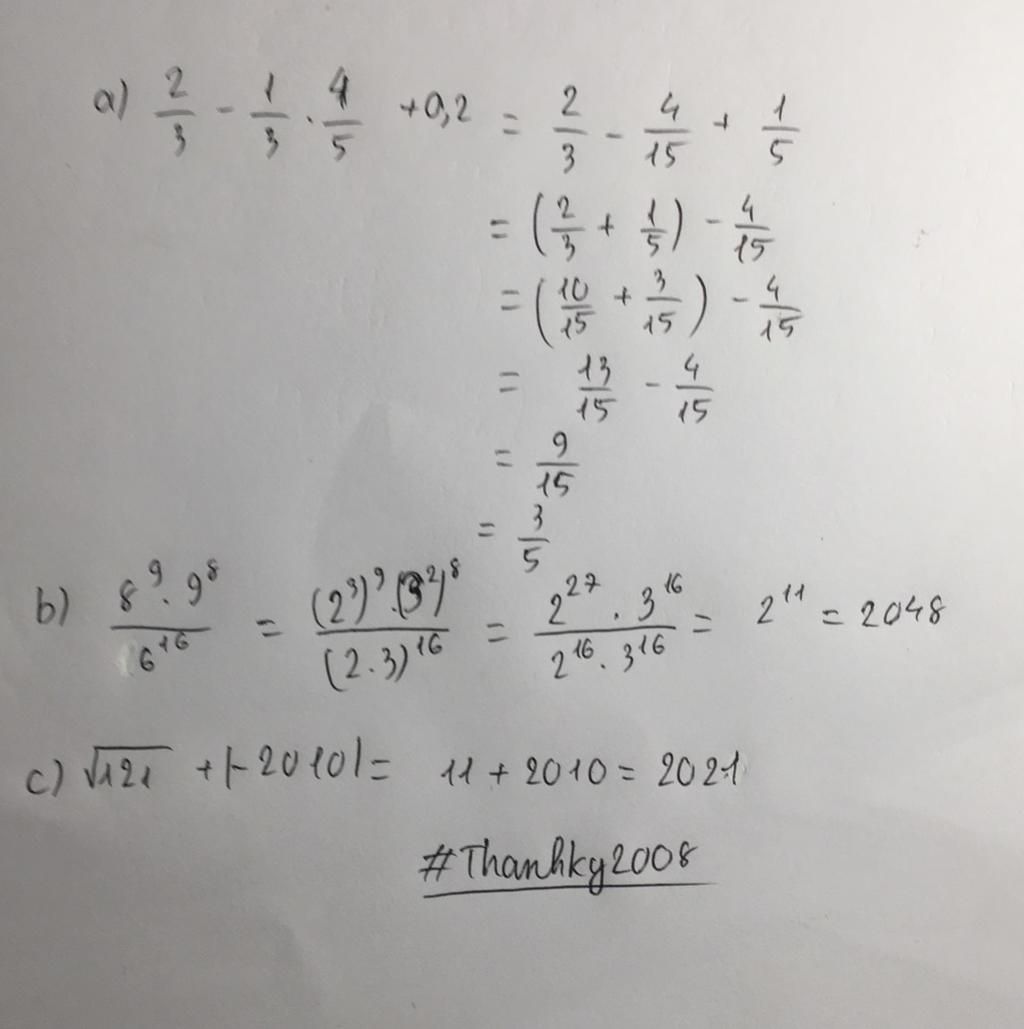 a) 2/3 - 1/3 . 4/5 +0,2 = 2/3 - 4/15 + 1/5
= (2/3 + 1/5) - 4/15
= (10/15 + 3/15) - 4/15
= 13/15 - 4/15
= 9/15
= 3/5
b) 8⁹ . 9⁸ / 6¹⁶ = (2³)⁹ . (3²)⁸ / (2.3)¹⁶ = 2²⁷ . 3¹⁶ / 2¹⁶ . 3¹⁶ = 2¹¹ = 2048
c) √121 + |-2010| = 11 + 2010 = 2021
#Thanhky2008